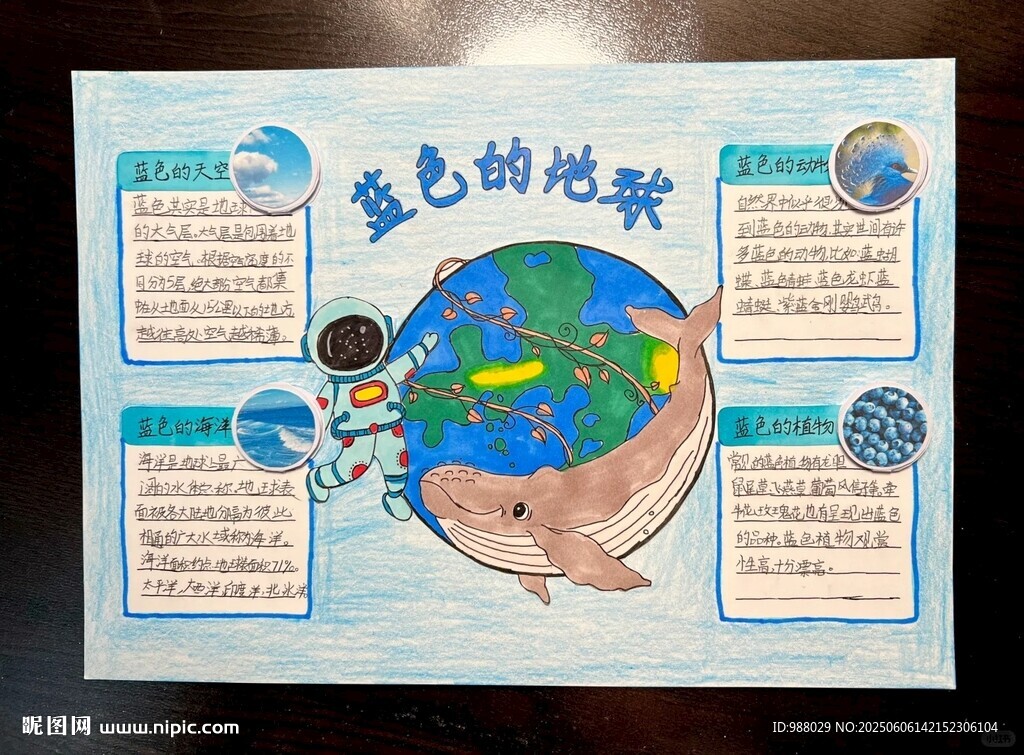 蓝色的地球
蓝色的天空
蓝色其实是地球
的大气层。大气层是包围着地
球的空气。根据空气密度的不
同分为5层,绝大部份空气都集
中在从地面从15公里以下的地方,
越往高处,空气越稀薄。
蓝色的海洋
海洋是地球上最广
阔的水体总称。地球表
面被各大陆地分隔为彼此
相通的广大水域称为海洋。
海洋面积约占地球面积71%。
太平洋,大西洋,印度洋,北冰洋
蓝色的动物
自然界中似乎很
到蓝色的动物,其实世间有许
多蓝色的动物,比如:蓝蝴
蝶、蓝色青蛙、蓝色龙虾、蓝
蜻蜓、紫蓝金刚鹦鹉。
蓝色的植物
常见的蓝色植物有龙胆
鼠尾草、飞燕草、葡萄风信子等。牵
牛花、玫瑰花也有呈现出蓝色
的品种。蓝色植物观赏
性高,十分漂亮。
昵图网 www.nipic.com
ID:988029 NO:20250606142152306104